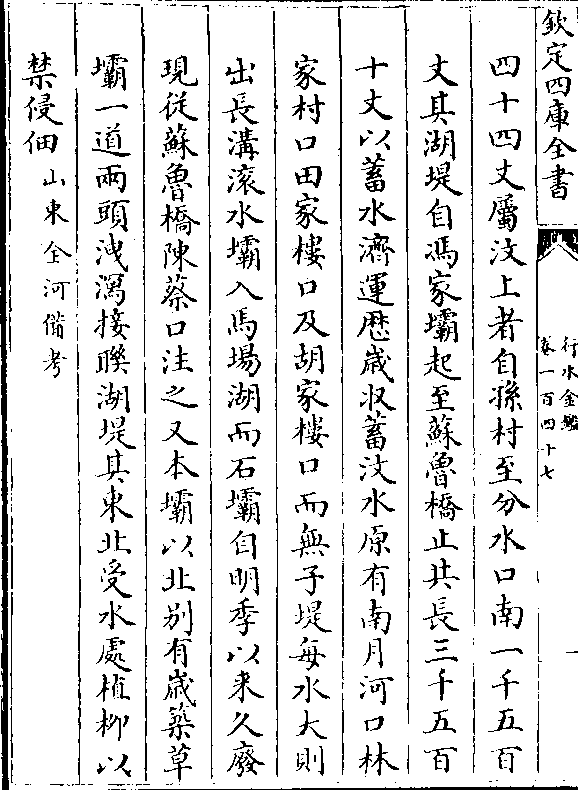 欽定四庫全書
行水金鑑
卷一百四十七
四十四丈屬汶上者自孫村至分水口南一千五百
丈其湖堤自馮家壩起至蘇魯橋止共長三千五百
十丈以蓄水濟運歴歲收蓄汶水原有南月河口林
家村口田家樓口及胡家樓口而無子堤每水大則
出長溝滚水壩入馬場湖而石壩自明季以来久廢
現從蘇魯橋陳蔡口注之又本壩以北别有歲築草
壩一道兩頭洩瀉接聯湖堤其東北受水處植柳以
禁侵佃山東全河備考